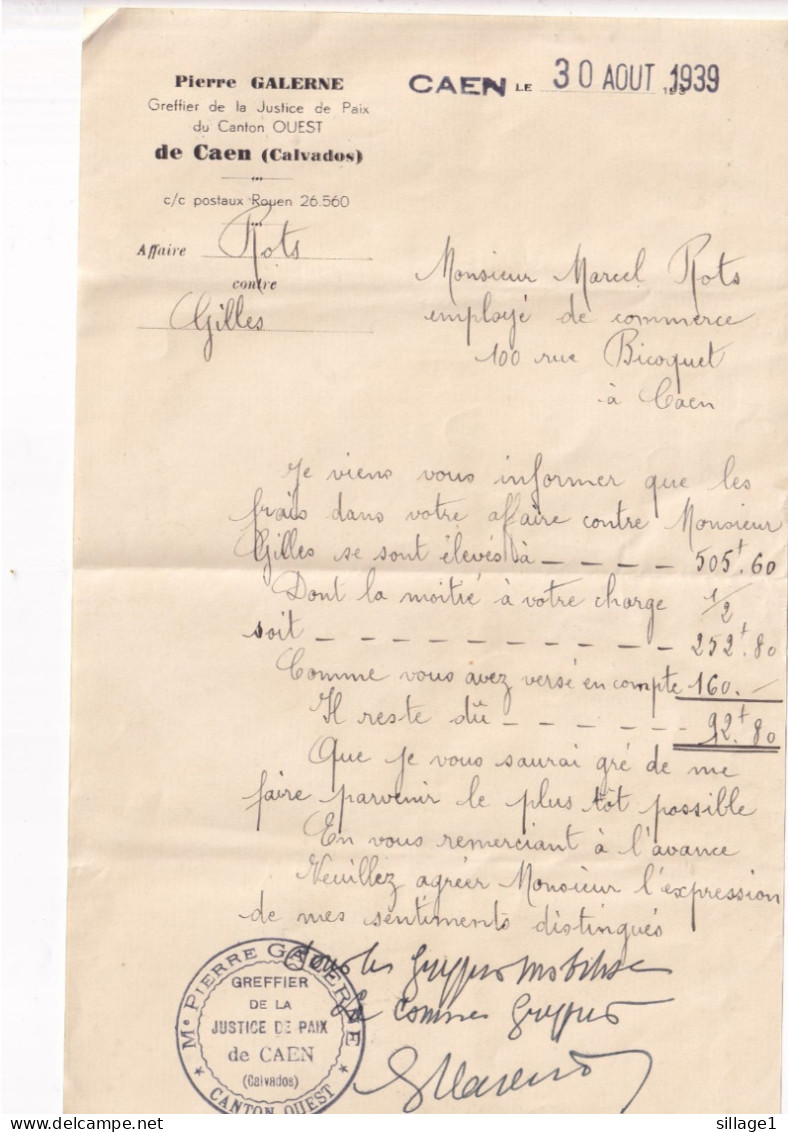 Pierre GALERNE
Greffier de la Justice de Paix
du Canton OUEST
de Caen (Calvados)
c/c postaux Rouen 26.560
CAEN LE 30 AOUT 1939
Affaire Rots
contre
Gilles
Monsieur Marcel Rots
employé de commerce
100 rue Bicoquet
à Caen
Je viens vous informer que les
frais dans votre affaire contre Monsieur
Gilles se sont élevés à _ _ _ _ _ 505f.60
Dont la moitié à votre charge 1/2
soit _ _ _ _ _ _ _ _ _ _ _ 252f.80
Comme vous avez versé en compte 160.—
Il reste dû _ _ _ _ _ _ 92f.80
Que je vous saurai gré de me
faire parvenir le plus tôt possible
En vous remerciant à l'avance
Veuillez agréer Monsieur l'expression
de mes sentiments distingués
Me PIERRE GALERNE
GREFFIER
DE LA
JUSTICE DE PAIX
de CAEN
(Calvados)
★ CANTON OUEST ★
sillage1